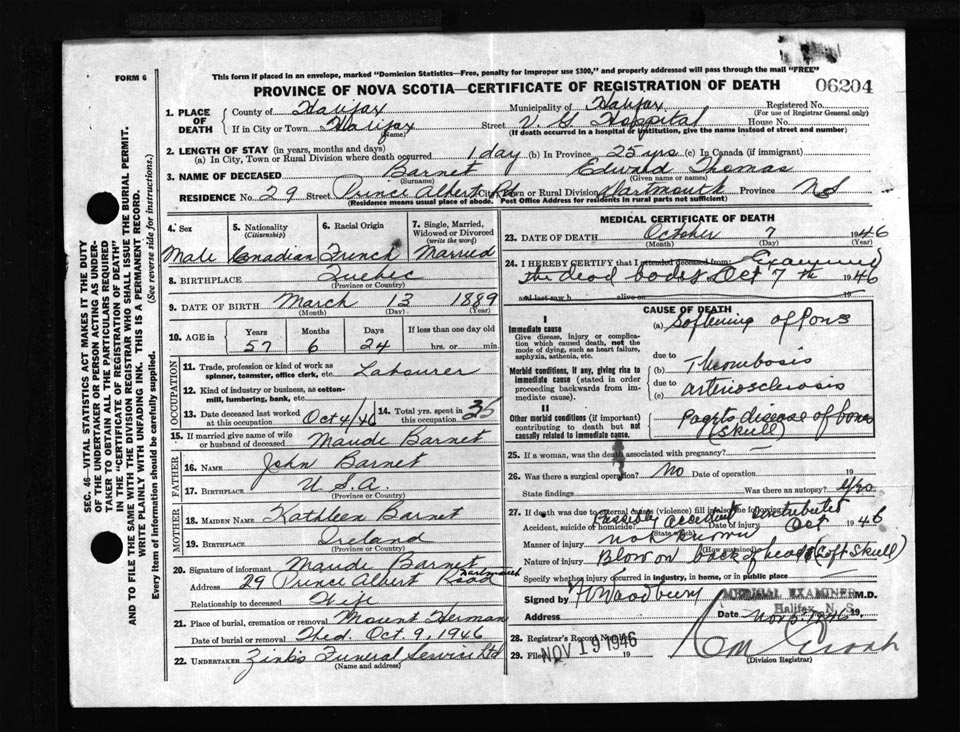 FORM 6
This form if placed in an envelope, marked "Dominion Statistics—Free, penalty for improper use $300," and properly addressed will pass through the mail "FREE"
PROVINCE OF NOVA SCOTIA—CERTIFICATE OF REGISTRATION OF DEATH
06204
1. PLACE OF DEATH
County of Halifax Municipality of Halifax Registered No.
(For use of Registrar General only)
If in City or Town Halifax Street V. G. Hospital House No.
(Name) (If death occurred in a hospital or institution, give the name instead of street and number)
2. LENGTH OF STAY (in years, months and days)
(a) In City, Town or Rural Division where death occurred 1 day (b) In Province 25 yrs (c) In Canada (if immigrant)
3. NAME OF DECEASED Barnet Edward Thomas
(Surname) (Given name or names)
RESIDENCE No. 29 Street Prince Albert Rd City, Town or Rural Division Dartmouth Province N S
(Residence means usual place of abode. Post Office Address for residents in rural parts not sufficient)
4. Sex
Male
5. Nationality
(Citizenship)
Canadian
6. Racial Origin
French
7. Single, Married, Widowed or Divorced
(write the word)
Married
8. BIRTHPLACE Quebec
(Province or Country)
9. DATE OF BIRTH March 13 1889
(Month) (Day) (Year)
10. AGE in
Years Months Days If less than one day old
57 6 24 hrs. or min.
OCCUPATION
11. Trade, profession or kind of work as spinner, teamster, office clerk, etc. Labourer
12. Kind of industry or business, as cotton-mill, lumbering, bank, etc.
13. Date deceased last worked at this occupation Oct 4/46 14. Total yrs. spent in this occupation 36
15. If married give name of wife or husband of deceased Maude Barnet
FATHER
16. NAME John Barnet
17. BIRTHPLACE U. S. A.
(Province or Country)
MOTHER
18. MAIDEN NAME Kathleen Barnet
19. BIRTHPLACE Ireland
(Province or Country)
20. Signature of informant Maude Barnet
Address 29 Prince Albert Road Dartmouth
Relationship to deceased Wife
21. Place of burial, cremation or removal Mount Herman
Date of burial or removal Wed. Oct. 9, 1946
22. UNDERTAKER Zinks Funeral Service Ltd
(Name and address)
MEDICAL CERTIFICATE OF DEATH
23. DATE OF DEATH October 7 1946
(Month) (Day) (Year)
24. I HEREBY CERTIFY that I attended deceased from: Examined
the dead body Oct 7th 1946
and last saw h alive on 19
CAUSE OF DEATH
I
Immediate cause
Give disease, injury or complication which caused death, not the mode of dying, such as heart failure, asphyxia, asthenia, etc.
(a) Softening of Pons
due to
Morbid conditions, if any, giving rise to immediate cause (stated in order proceeding backwards from immediate).
(b) Thrombosis
due to
(c) arteriosclerosis
II
Other morbid conditions (if important) contributing to death but not causally related to immediate cause.
Pagets disease of bones
(skull)
25. If a woman, was the death associated with pregnancy?
26. Was there a surgical operation? No Date of operation 19
State findings Was there an autopsy? Yes
27. If death was due to external causes (violence) fill in also the following:
Possibly accident contributed
Accident, suicide or homicide? Date of injury Oct 1946
(State which)
Manner of injury not known
(How sustained)
Nature of injury Blow on back of head (Soft Skull)
Specify whether injury occurred in industry, in home, or in public place
Signed by H Woodbury MEDICAL EXAMINER M.D.
Halifax, N. S.
Address Date Nov 5 1946 19
28. Registrar's Record No.
29. Filed NOV 19 1946 19
(Division Registrar)
SEC. 46—VITAL STATISTICS ACT MAKES IT THE DUTY
OF THE UNDERTAKER OR PERSON ACTING AS UNDER-
TAKER TO OBTAIN ALL THE PARTICULARS REQUIRED
IN THE "CERTIFICATE OF REGISTRATION OF DEATH"
AND TO FILE THE SAME WITH THE DIVISION REGISTRAR WHO SHALL ISSUE THE BURIAL PERMIT.
WRITE PLAINLY WITH UNFADING INK. THIS IS A PERMANENT RECORD.
Every item of information should be carefully supplied. (See reverse side for instructions.)